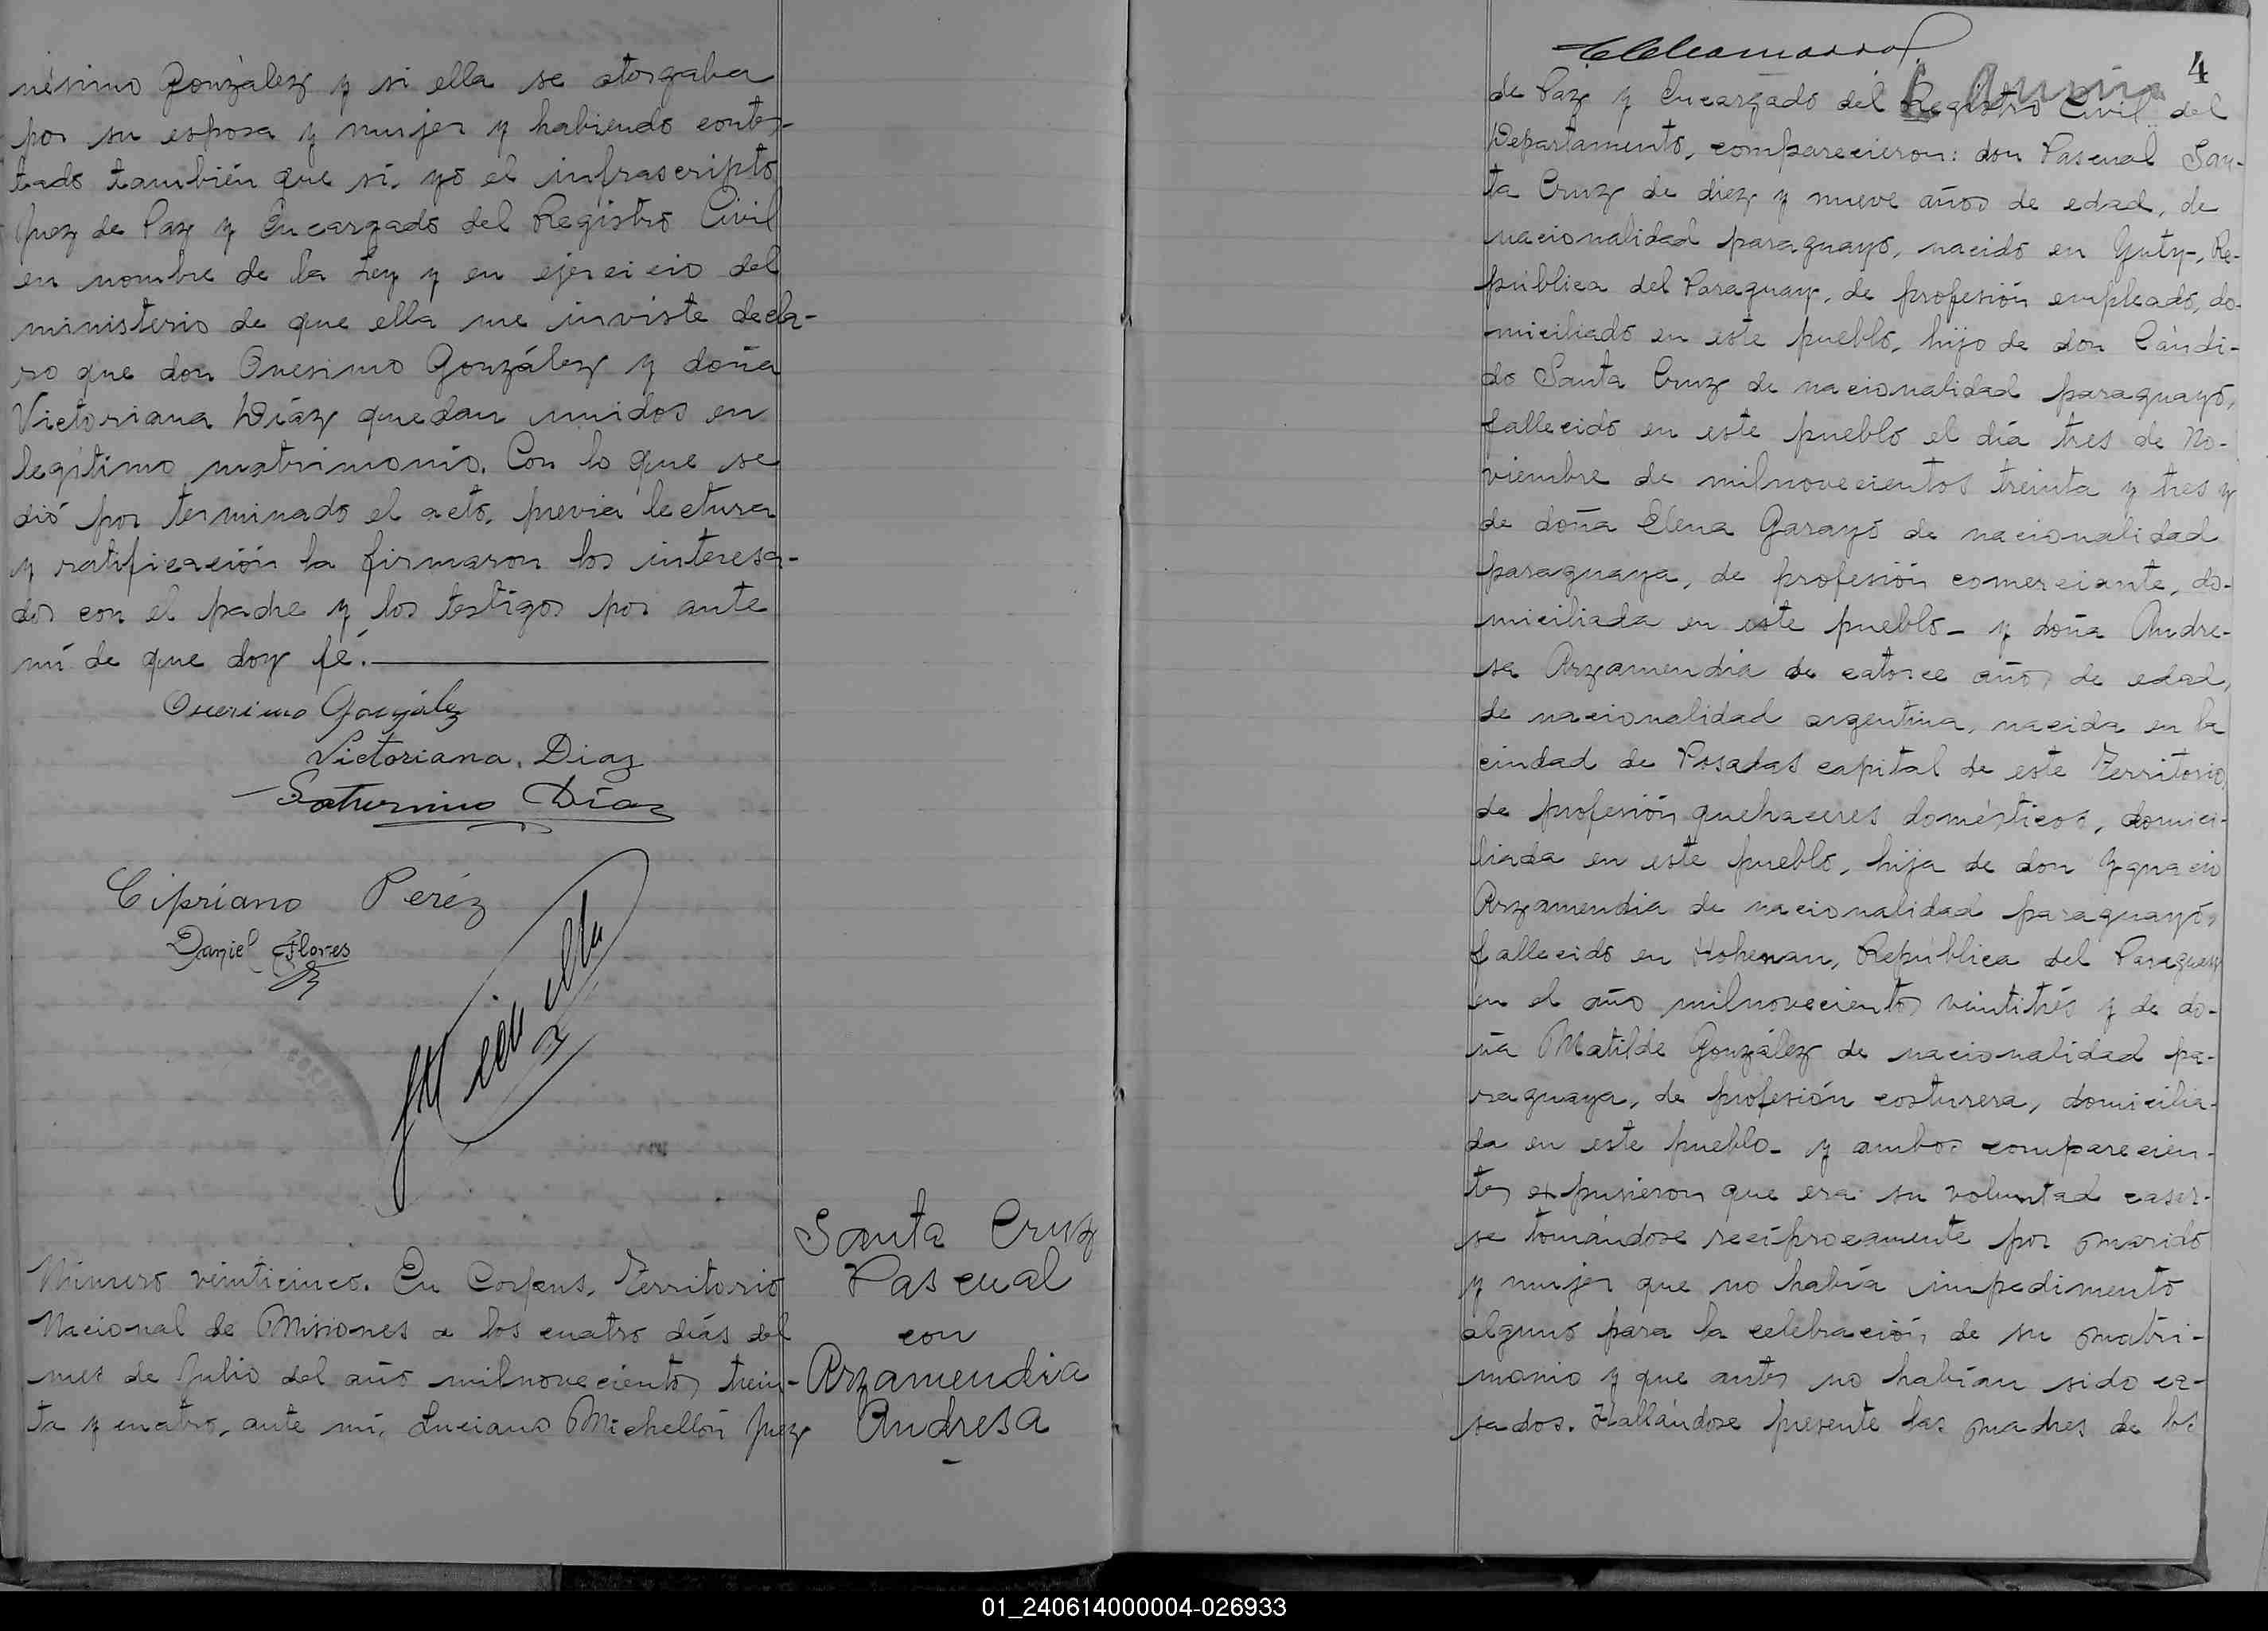 nésimo González y si ella se otorgaba
por su esposa y mujer y habiendo contes-
tado también que sí, yo el infrascripto
Juez de Paz y Encargado del Registro Civil
en nombre de la Ley y en ejercicio del
ministerio de que ella me inviste decla-
ro que don Onesimo González y doña
Victoriana Díaz quedan unidos en
legítimo matrimonio. Con lo que se
dió por terminado el acto, previa lectura
y ratificación la firmaron los interesa-
dos con el padre y los testigos por ante
mí de que doy fé.
Onesimo González
Victoriana Diaz
Saturnino Díaz
Cipriano Peréz
Daniel Flores
Número veinticinco. En Corpus, Territorio
Nacional de Misiones a los cuatro días del
mes de Julio del año milnovecientos trein-
ta y cuatro, ante mí, Luciano Michellón Juez
Santa Cruz
Pascual
con
Arzamendia
Andresa
4
de Paz y Encargado del Registro Civil del
Departamento, comparecieron: don Pascual San-
ta Cruz de diez y nueve años de edad, de
nacionalidad paraguayo, nacido en Yuty, Re-
pública del Paraguay, de profesión empleado, do-
miciliado en este pueblo, hijo de don Cándi-
do Santa Cruz de nacionalidad paraguayo,
fallecido en este pueblo el día tres de No-
viembre de milnovecientos treinta y tres y
de doña Elena Garayo de nacionalidad
paraguaya, de profesión comerciante, do-
miciliada en este pueblo- y doña Andre-
sa Arzamendia de catorce años de edad,
de nacionalidad argentina, nacida en la
ciudad de Posadas capital de este Territorio,
de profesión quehaceres domésticos, domici-
liada en este pueblo, hija de don Ygnacio
Arzamendia de nacionalidad paraguayo,
fallecido en Hohenau, República del Paraguay
en el año milnovecientos veintitrés y de do-
ña Matilde González de nacionalidad pa-
raguaya, de profesión costurera, domicilia-
da en este pueblo- y ambos comparecien-
tes expusieron que era su voluntad casar-
se tomándose recíprocamente por marido
y mujer que no había impedimento
alguno para la celebración de su matri-
monio y que antes no habían sido ca-
sados. Hallándose presente las madres de los
01_240614000004-026933